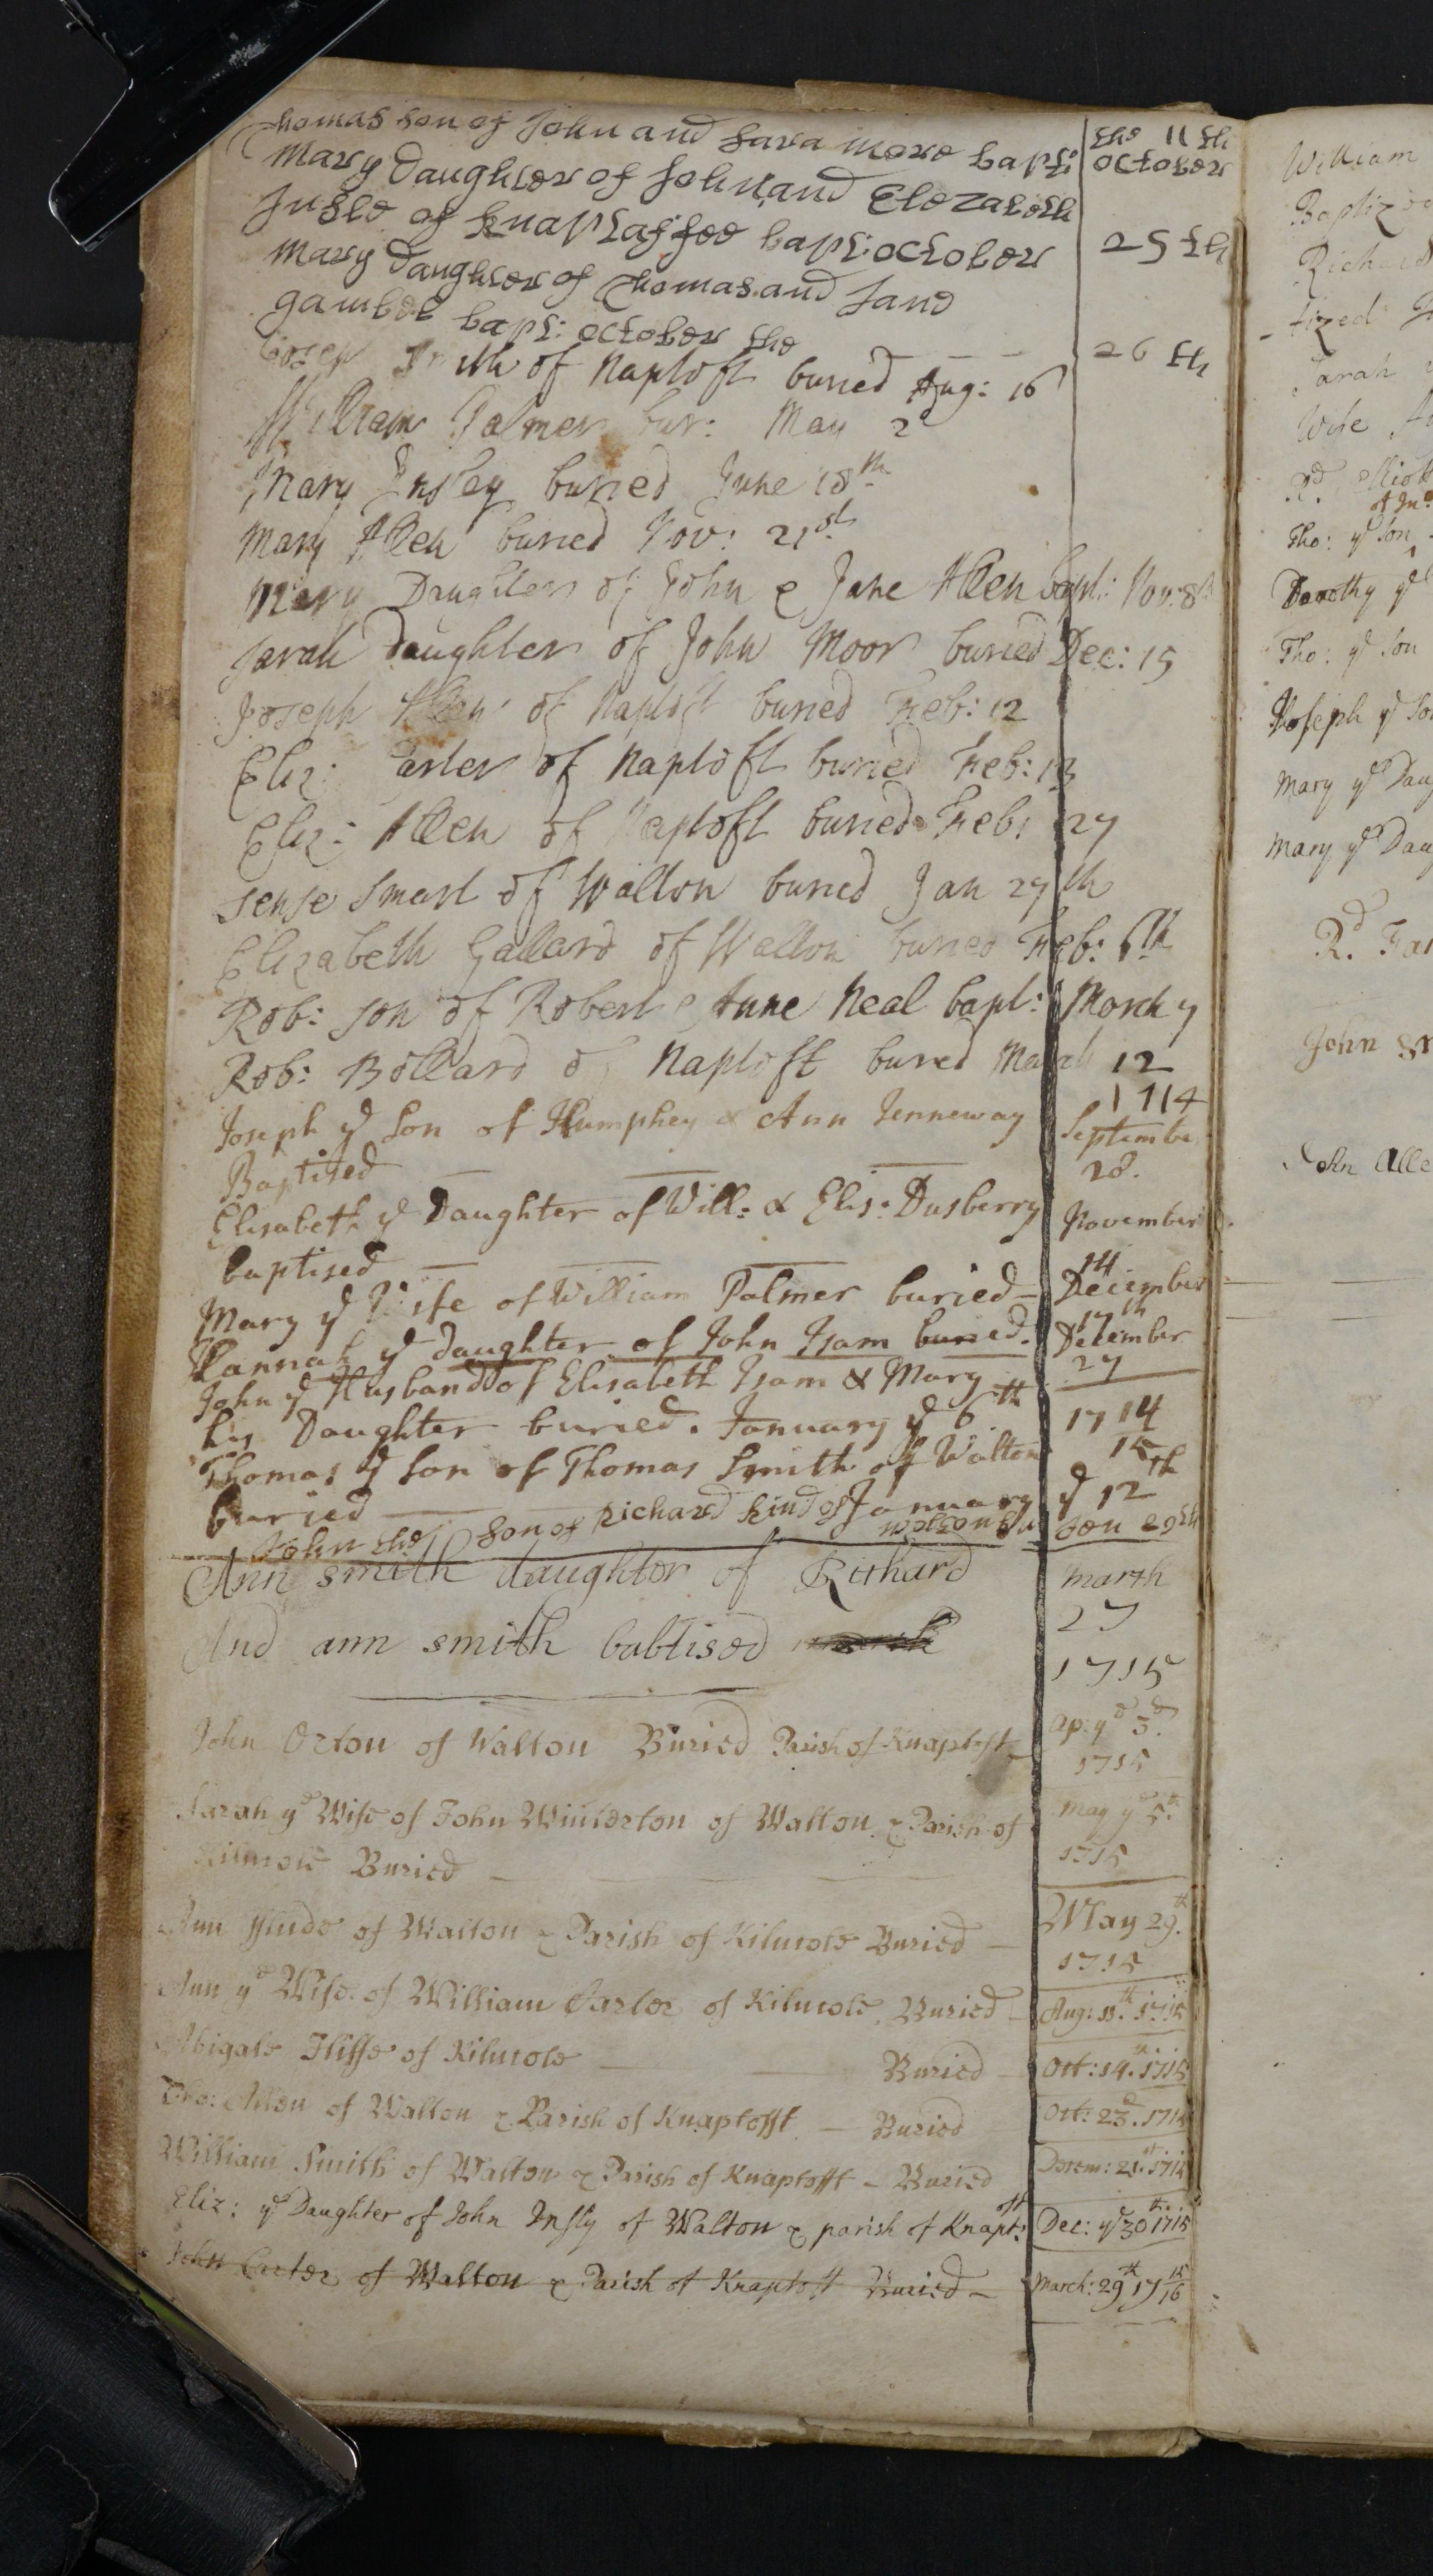 Thomas son of John and Sara more bapt: the 11th
October
Mary Daughter of John and Elezabeth
Insle of Knaptaffee bapt: october 25th
Mary Daughter of Thomas and Jane
gambel bapt: october the 26th
of Naploft buried Aug: 16
William Palmer bur: May 2
Mary Insley buried June 18th
Mary Allen buried Nov: 21st
Mary Daughter of John & Jane Allen bapt: Nov: 8
Sarah Daughter of John Moor buried Dec: 15
Joseph Allen of Naploft buried Feb: 12
Eliz: arter of Naploft buried Feb: 13
Eliz: Allen of Naploft buried Feb: 27
Sense Smart of Walton buried Jan 27th
Elizabeth Gallard of Walton buried Feb: th
Rob: son of Robert & Anne Neal bapt: March 7
Rob: Bollard of Naploft buried March 12
1714
Joseph ye Son of Humphey & Ann Jenneway September
Baptised 28.
Elisabeth ye Daughter of Will: & Elis: Dusberry November
baptised 14
Mary ye Wife of William Palmer buried December
17th
Hannah ye Daughter of John Isam buried December
27
John ye Husband of Elisabeth Isam & Mary
his Daughter buried. January ye 6th 1714
15
Thomas ye Son of Thomas Smith of Walton
buried January ye 12th
John the son of Richard Kind of Walton Bu Jan 29th
Ann smith daughter of Richard march
27
And ann smith babtised 1715
John Orton of Walton Buried Parish of Knaptoft Ap: ye 3d.
1715
Sarah ye Wife of John Winterton of Walton & Parish of May ye 5th.
Kilmole Buried 1715
Ann of Walton & Parish of Kilmole Buried May 29th.
1715
Ann ye Wife of William Carter of Kilmole Buried Aug: 11th. 1715
Abigale Iliffe of Kilmole Buried Oct: 14th. 1715
Allen of Walton & Parish of Knaptofft Buried Oct: 23d. 1715
William Smith of Walton & Parish of Knaptofft Buried Decem: 21st. 1715
Eliz: ye Daughter of John Insly of Walton & parish of Knaptoft Dec: ye 30th 1715
John Carter of Walton & Parish of Knaptoft Buried March: 29th 17 15/16
William
Richard
tized
Sarah
Wife
Rd. Elliott
Tho: ye Son
Dorothy ye
Tho: ye Son
Joseph ye So
Mary ye Dau
Mary ye Dau
Rd. Far
John
John Alle